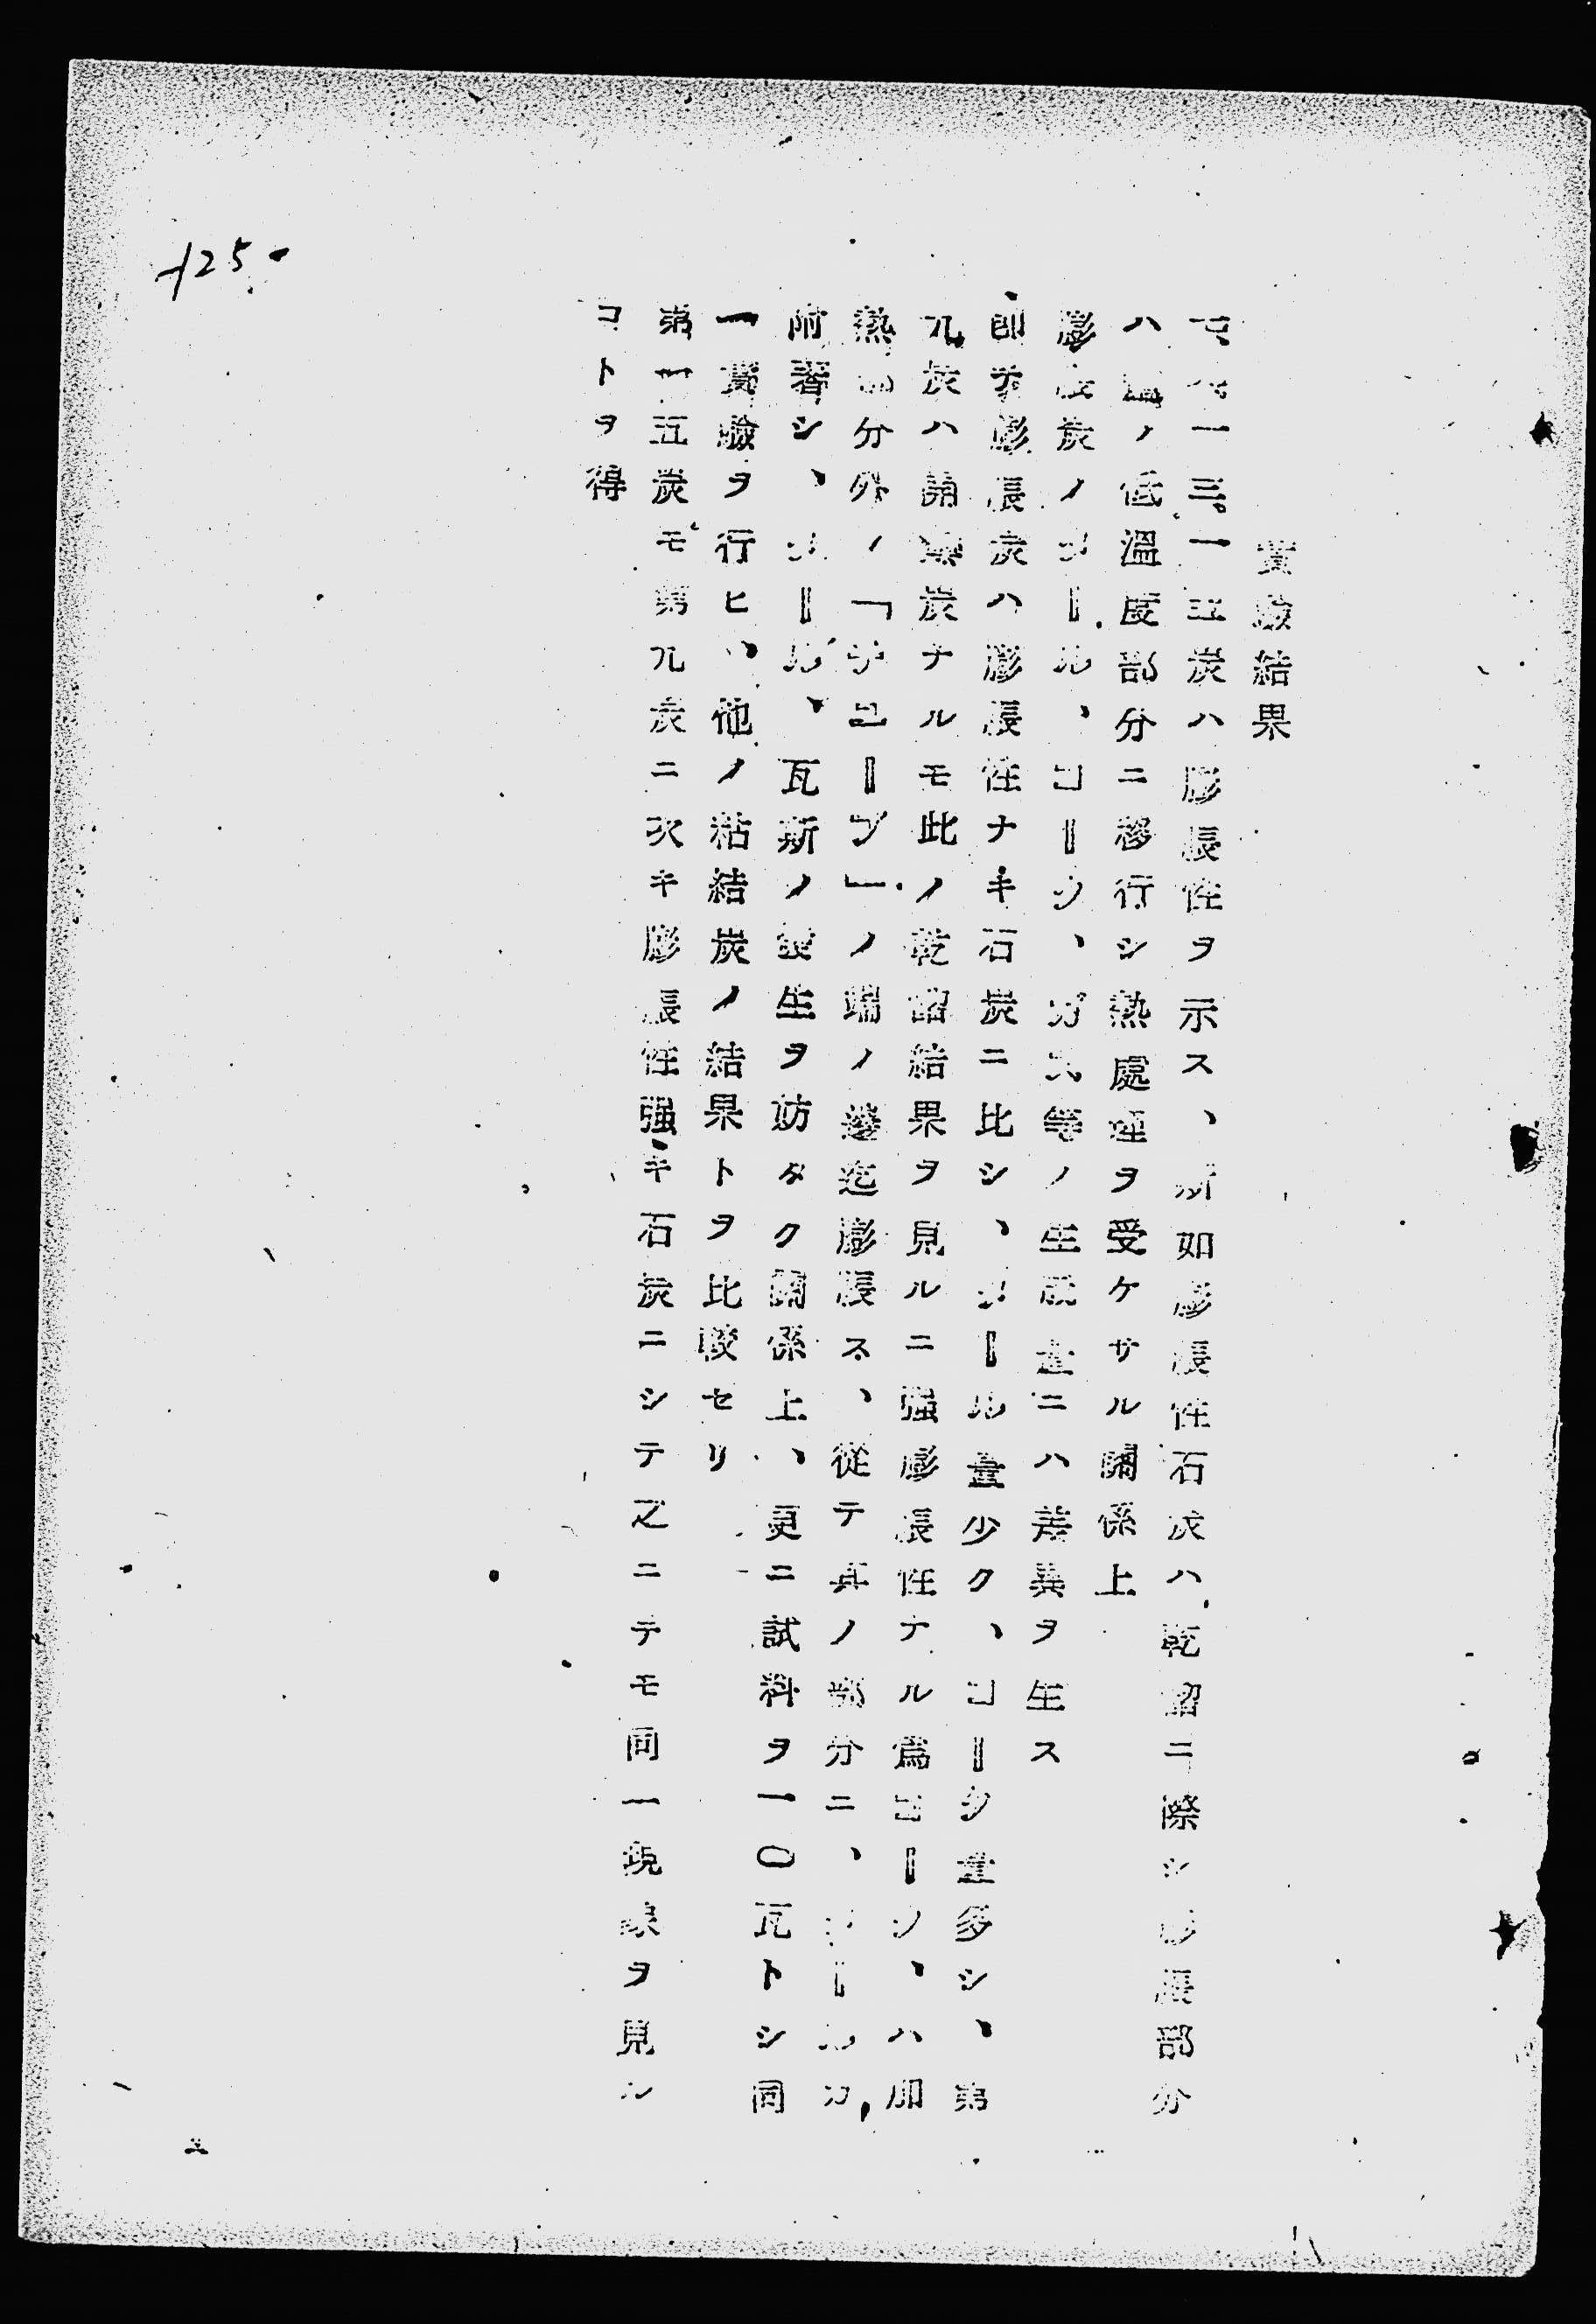 實驗結果
一三。一五炭ハ膨脹性ヲ示ス、斯如膨脹性石炭ハ乾餾ニ際シ膨脹部分
ハ ノ低溫度部分ニ移行シ熱處理ヲ受ケサル關係上
膨脹炭ノタール、コーク、ガス等ノ生成量ニハ差異ヲ生ス
即チ膨脹炭ハ膨脹性ナキ石炭ニ比シ、タール量少ク、コーク量多シ、第
九炭ハ開灤炭ナルモ此ノ乾餾結果ヲ見ルニ强膨脹性ナル爲コーク、ハ加
熱部分外ノ「チユーブ」ノ端ノ邊迄膨脹ス、從テ其ノ部分ニ、タールカ
附著シ、タール、瓦斯ノ發生ヲ妨タク關係上、更ニ試料ヲ一〇瓦トシ同
一實驗ヲ行ヒ、他ノ粘結炭ノ結果トヲ比較セリ
第一五炭モ第九炭ニ次キ膨脹性强キ石炭ニシテ之ニテモ同一現象ヲ見ル
コトヲ得
125